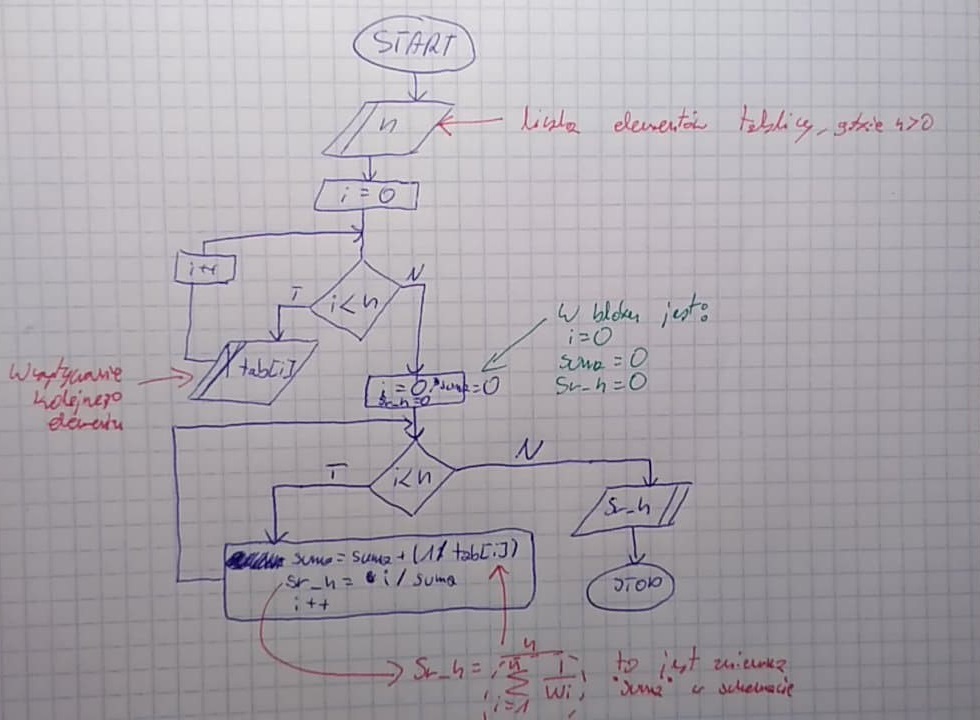 START
n
liczba elementów tablicy, gdzie n>0
i = 0
i++
i < n
T
N
tab[i]
Wczytywanie
kolejnego
elementu
W bloku jest:
i=0
suma = 0
Sr_h = 0
i = 0; suma = 0
Sr_h = 0
i<n
T
N
Sr_h
STOP
suma = suma + (1/ tab[i])
Sr_h = i / suma
i++
Sr_h =
n
n
∑
i=1
1
Wi
to jest zmienna
"suma" w schemacie